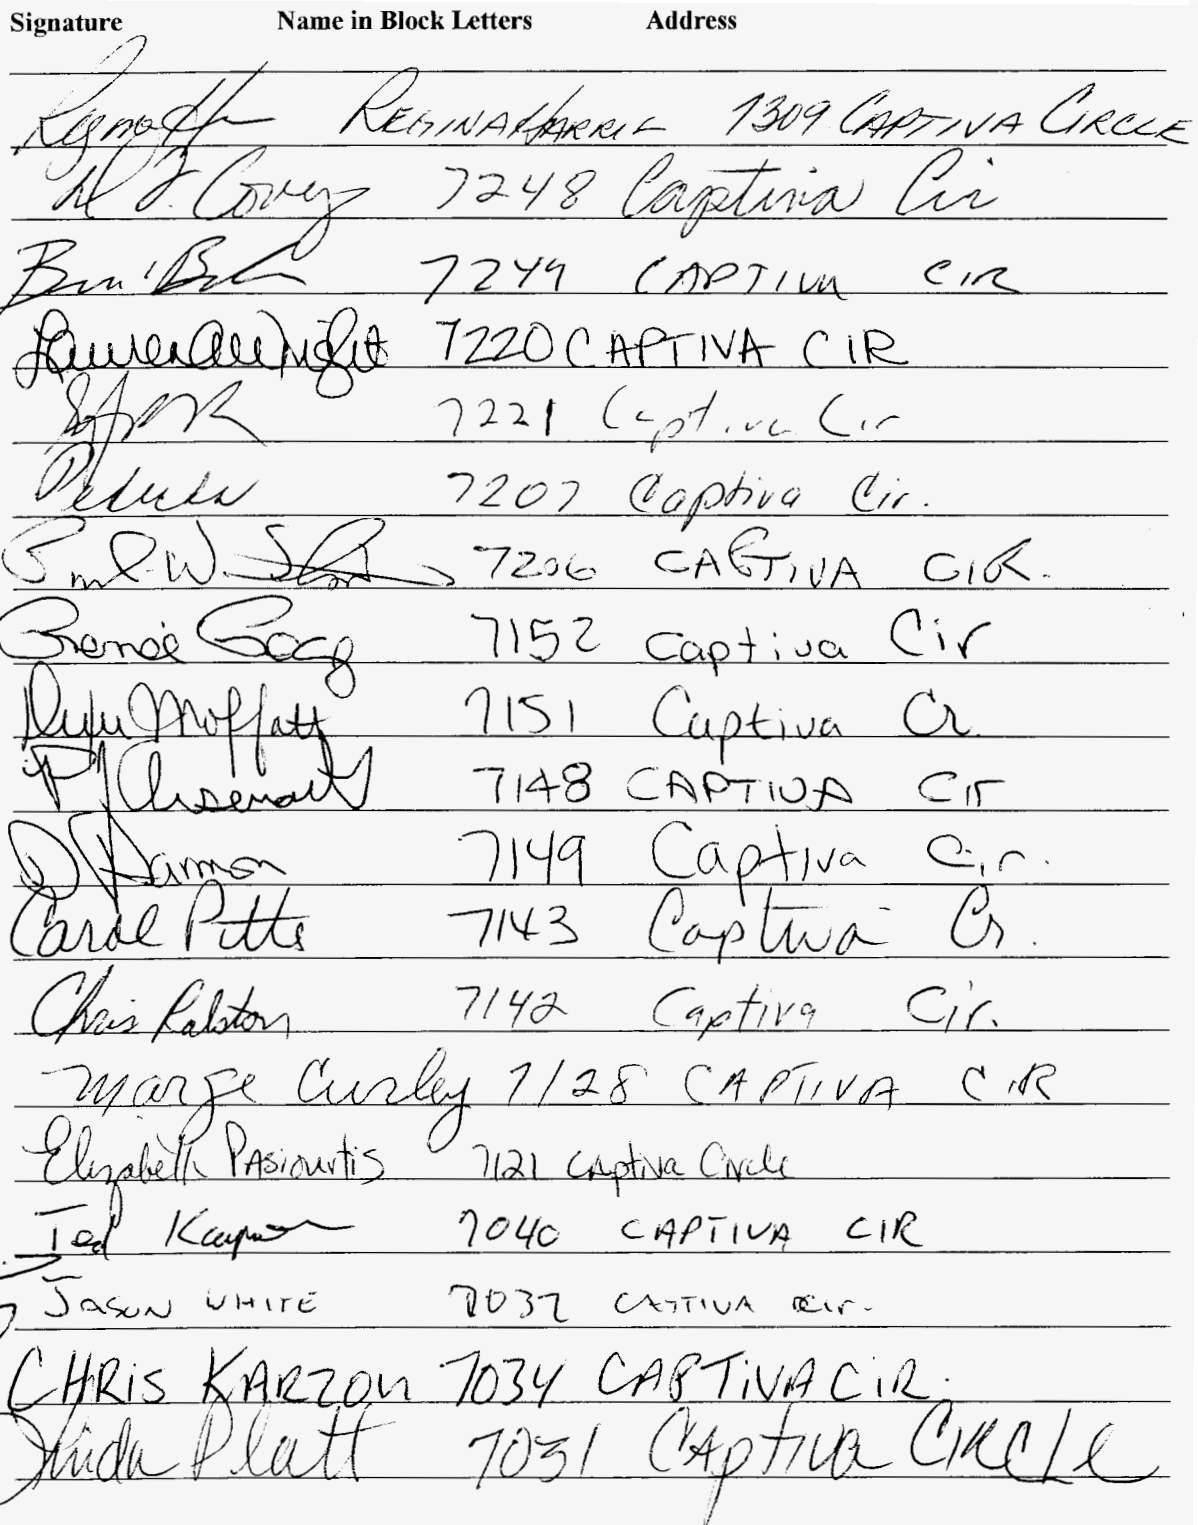 Signature Name in Block Letters Address
REGINA HARRIS 1309 CAPTIVA CIRCLE
Covey 7248 Captiva Cir
7249 CAPTIVA CIR
Wright 7220 CAPTIVA CIR
7221 Captiva Cir
7207 Captiva Cir.
7206 CAPTIVA CIR.
7152 Captiva Cir
Moffatt 7151 Captiva Cr.
PJ Arsenault 7148 CAPTIVA Cir
D Harmon 7149 Captiva Cir.
Carol Pitts 7143 Captiva Cr.
Chris Ralston 7142 Captiva Cir.
Marge Curley 7128 CAPTIVA CIR
Elizabeth PASiourtis 7121 Captiva Circle
Ted 7040 CAPTIVA CIR
JASON WHITE 7037 CAPTIVA Cir.
CHRIS KARZON 7034 CAPTIVA CIR.
Linda Platt 7031 CAptiva CIRCLe